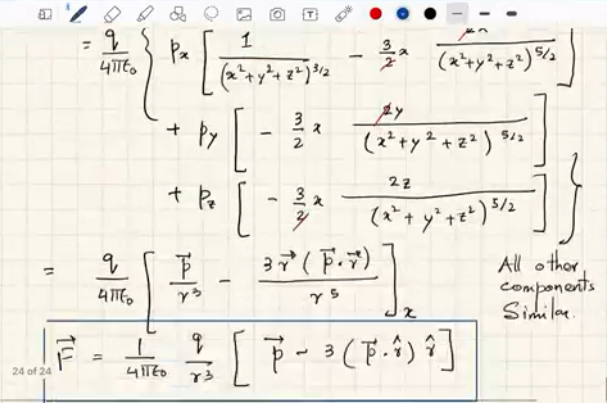 = q/4πε₀ { pₓ [ 1/(x²+y²+z²)^3/2 − 3/2 x 2x/(x²+y²+z²)^5/2 ]
+ p_y [ − 3/2 x 2y/(x²+y²+z²)^5/2 ]
+ p_z [ − 3/2 x 2z/(x²+y²+z²)^5/2 ] }
= q/4πε₀ [ p⃗/r³ − 3r⃗(p⃗·r⃗)/r⁵ ]ₓ
All other
components
Similar.
F⃗ = 1/4πε₀ q/r³ [ p⃗ − 3(p⃗·r̂) r̂ ]
24 of 24